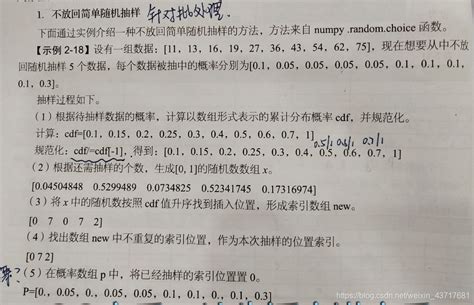 1. 不放回简单随机抽样 针对批处理.
下面通过实例介绍一种不放回简单随机抽样的方法，方法来自 numpy .random.choice 函数。
【示例 2-18】设有一组数据：[11, 13, 16, 19, 27, 36, 43, 54, 62, 75]，现在想要从中不放
回随机抽样 5 个数据，每个数据被抽中的概率分别为[0.1, 0.05, 0.05, 0.05, 0.05, 0.1, 0.1, 0.1,
0.1, 0.3]。
抽样过程如下。
（1）根据待抽样数据的概率，计算以数组形式表示的累计分布概率 cdf，并规范化。
计算：cdf=[0.1, 0.15, 0.2, 0.25, 0.3, 0.4, 0.5, 0.6, 0.7, 1]
0.5/1 0.6/1 0.7/1
规范化：cdf/=cdf[-1]，得到：[0.1, 0.15, 0.2, 0.25, 0.3, 0.4, 0.5, 0.6, 0.7, 1]
（2）根据还需抽样的个数，生成[0, 1]的随机数数组 x。
[0.04504848 0.5299489 0.0734825 0.52341745 0.17316974]
（3）将 x 中的随机数按照 cdf 值升序找到插入位置，形成索引数组 new。
[0 7 0 7 2]
（4）找出数组 new 中不重复的索引位置，作为本次抽样的位置索引。
[0 7 2]
（5）在概率数组 p 中，将已经抽样的索引位置置 0。
P=[0., 0.05, 0., 0.05, 0.05, 0.1, 0.1, 0., 0.1, 0.3]
https://blog.csdn.net/weixin_43717681